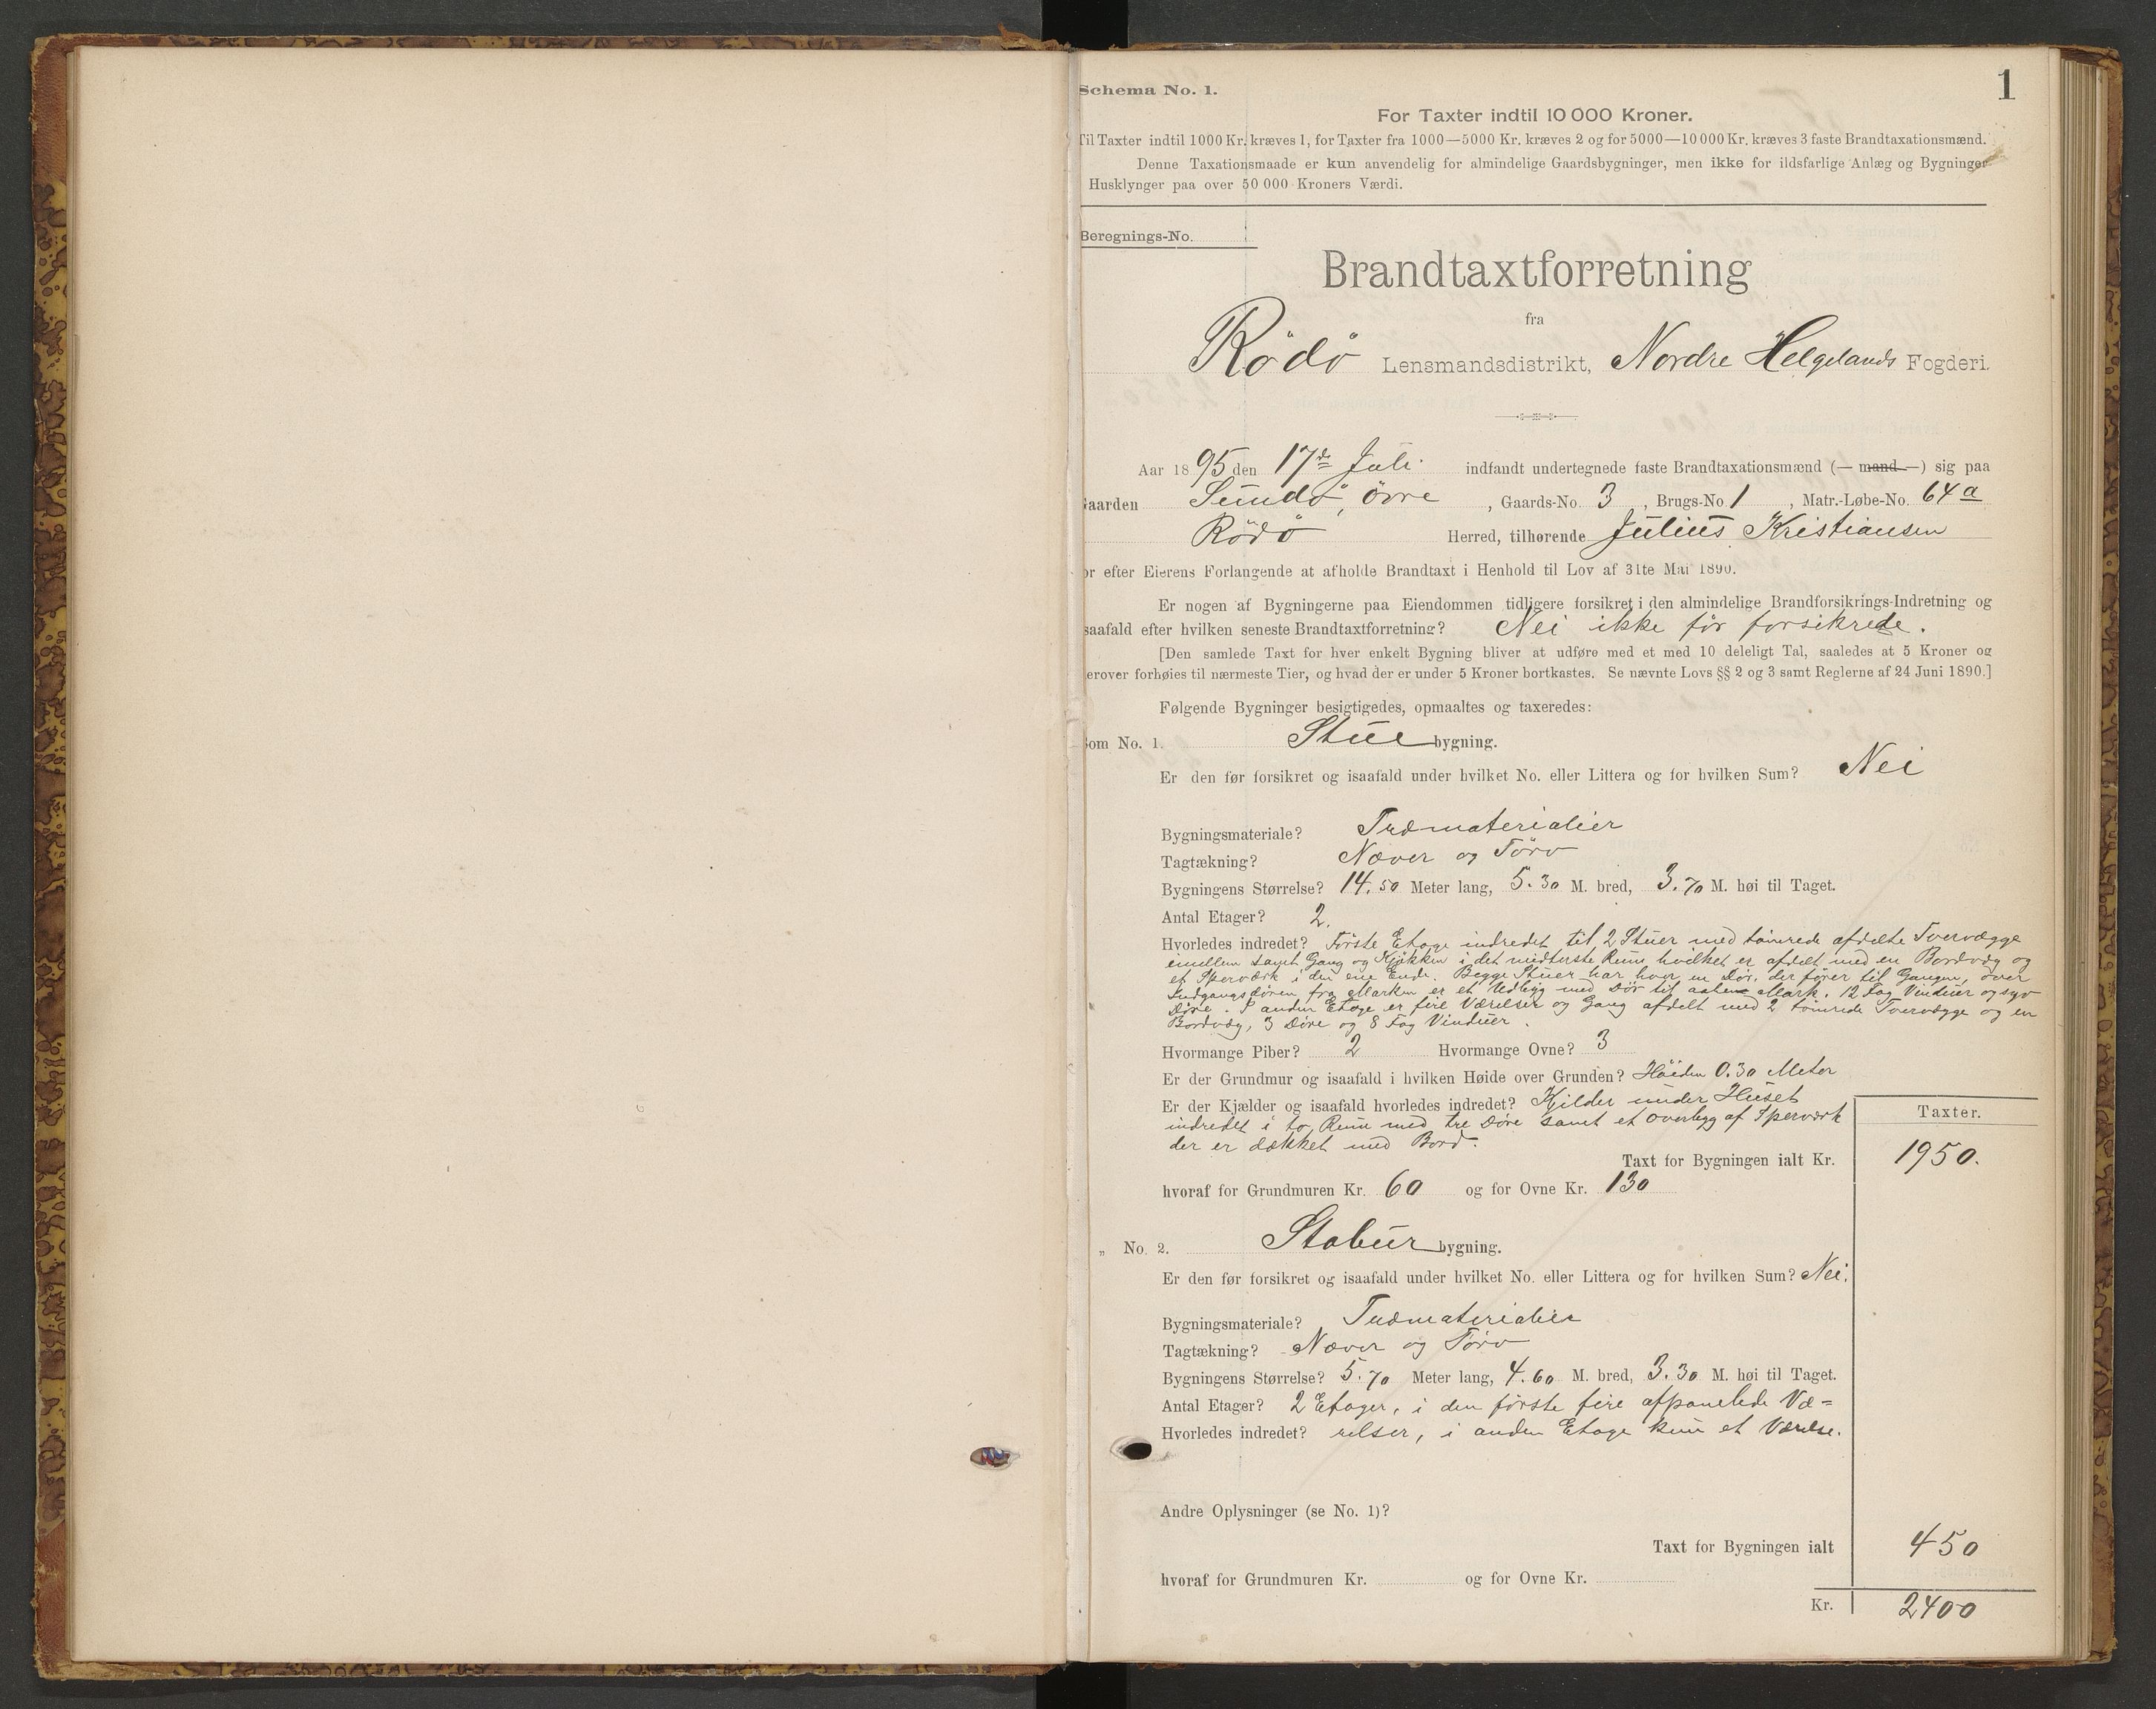 Schema No. 1.
1
For Taxter indtil 10 000 Kroner.
Til Taxter indtil 1000 Kr. kræves 1, for Taxter fra 1000—5000 Kr. kræves 2 og for 5000—10 000 Kr. kræves 3 faste Brandtaxationsmænd.
Denne Taxationsmaade er kun anvendelig for almindelige Gaardsbygninger, men ikke for ildsfarlige Anlæg og Bygninger
Husklynger paa over 50 000 Kroners Værdi.
Beregnings-No.
Brandtaxtforretning
fra
Rödö Lensmandsdistrikt, Nordre Helgelands Fogderi.
Aar 1895 den 17de Juli indfandt undertegnede faste Brandtaxationsmænd (— mand —) sig paa
aarden Sundö, övre, Gaards-No. 3, Brugs-No. 1, Matr.-Løbe-No. 64 a
Rödö Herred, tilhørende Julius Kristiansen
or efter Eierens Forlangende at afholde Brandtaxt i Henhold til Lov af 31te Mai 1890.
Er nogen af Bygningerne paa Eiendommen tidligere forsikret i den almindelige Brandforsikrings-Indretning og
saafald efter hvilken seneste Brandtaxtforretning? Nei ikke för forsikrede.
[Den samlede Taxt for hver enkelt Bygning bliver at udføre med et med 10 deleligt Tal, saaledes at 5 Kroner og
erover forhøies til nærmeste Tier, og hvad der er under 5 Kroner bortkastes. Se nævnte Lovs §§ 2 og 3 samt Reglerne af 24 Juni 1890.]
Følgende Bygninger besigtigedes, opmaaltes og taxeredes:
Som No. 1. Stue bygning.
Er den før forsikret og isaafald under hvilket No. eller Littera og for hvilken Sum? Nei
Bygningsmateriale? Træmaterialier
Tagtækning? Næver og Törv
Bygningens Størrelse? 14.50 Meter lang, 5.30 M. bred, 3.70 M. høi til Taget.
Antal Etager? 2.
Hvorledes indredet? Förste Etage indredet til 2 Stuer med tömrede afdelte Tvervægge
imellem samt Gang og Kjökken i det midterste Rum hvilket er afdelt med en Bordvæg og
et Sperværk i den ene Ende. Begge Stuer har hver en Dör, der förer til Gangen, over
Indgangsdören fra Marken er et Udbygg med Dör til aaben Mark. 12 Fag Vinduer og syv
Döre. I anden Etage er fire Værelser og Gang afdelt med 2 tömrede Tvervægge og en
Bordvæg, 3 Döre og 8 Fag Vinduer.
Hvormange Piber? 2 Hvormange Ovne? 3
Er der Grundmur og isaafald i hvilken Høide over Grunden? Höiden 0.30 Meter
Er der Kjælder og isaafald hvorledes indredet? Kjelder under Huset
indredet i to Rum med tre Döre samt et overlegg af Sperværk
der er dækket med Bord.
Taxter.
Taxt for Bygningen ialt Kr. 1950.
hvoraf for Grundmuren Kr. 60 og for Ovne Kr. 130
„ No. 2. Stabur bygning.
Er den før forsikret og isaafald under hvilket No. eller Littera og for hvilken Sum? Nei.
Bygningsmateriale? Træmaterialier
Tagtækning? Næver og Törv
Bygningens Størrelse? 5.70 Meter lang, 4.60 M. bred, 3.30 M. høi til Taget.
Antal Etager? 2 Etager, i den förste fire afpanelede Væ=
Hvorledes indredet? relser, i anden Etage kun et Værelse.
Andre Oplysninger (se No. 1)?
Taxt for Bygningen ialt 450
hvoraf for Grundmuren Kr. og for Ovne Kr.
Kr. 2400